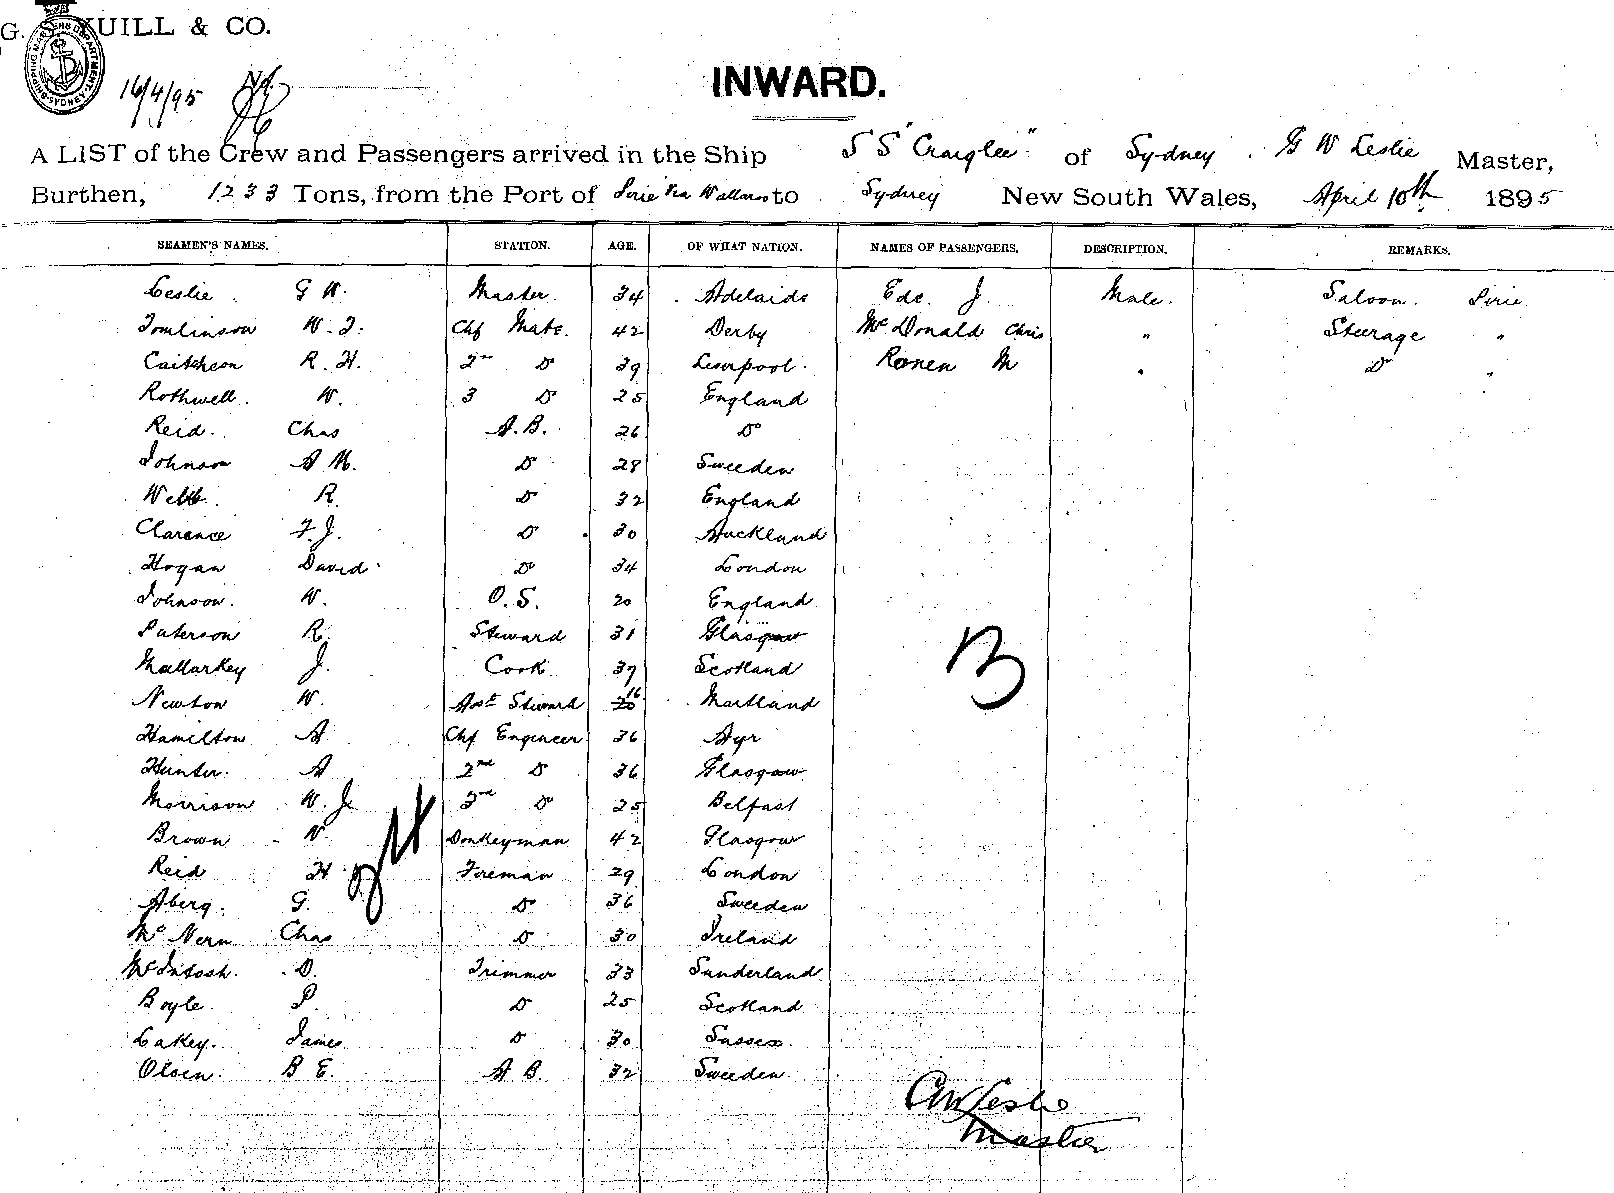 G. S. YUILL & CO.
SHIPPING MASTERS DEPARTMENT SYDNEY
16/4/95
INWARD.
A LIST of the Crew and Passengers arrived in the Ship SS "Craiglee" of Sydney. G W Leslie Master,
Burthen, 1233 Tons, from the Port of Pirie via Wallaroo to Sydney New South Wales, April 10th 1895
SEAMEN'S NAMES. STATION. AGE. OF WHAT NATION. NAMES OF PASSENGERS. DESCRIPTION. REMARKS.
Leslie G W. Master. 34 Adelaide Ede. J. Male. Saloon. Pirie
Tomlinson W. J. Chf Mate. 42 Derby McDonald Chris " Steerage "
Caitcheon R. H. 2nd Do 39 Liverpool. Ronen M " Do "
Rothwell. W. 3 Do 25 England
Reid. Chas A.B. 26 Do
Johnson A M. Do 28 Sweeden
Webb. R. Do 32 England
Clarence F. J. Do 30 Auckland
Hogan David Do 34 London
Johnson. W. O.S. 20 England
Paterson R. Steward 31 Glasgow
Mallarkey J. Cook 37 Scotland
Newton W. Asst Steward 20 16 Maitland
Hamilton A Chf Engineer 36 Ayr
Hunter. A 2nd Do 36 Glasgow
Morrison W. J. 3rd Do 25 Belfast
Brown W. Donkeyman 42 Glasgow
Reid H Fireman 29 London
Aberg. G. Do 36 Sweeden
Mc Nern Chas Do 30 Ireland
McIntosh. D. Trimmer 33 Sunderland
Boyle P. Do 25 Scotland
Lakey. James Do 30 Sussex
Olsen. B E. A B. 32 Sweeden
13
GW Leslie
Master